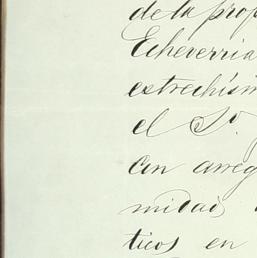 de la prop
Echeverria
estrechísim
el So.
con arreg
midad
ticos en